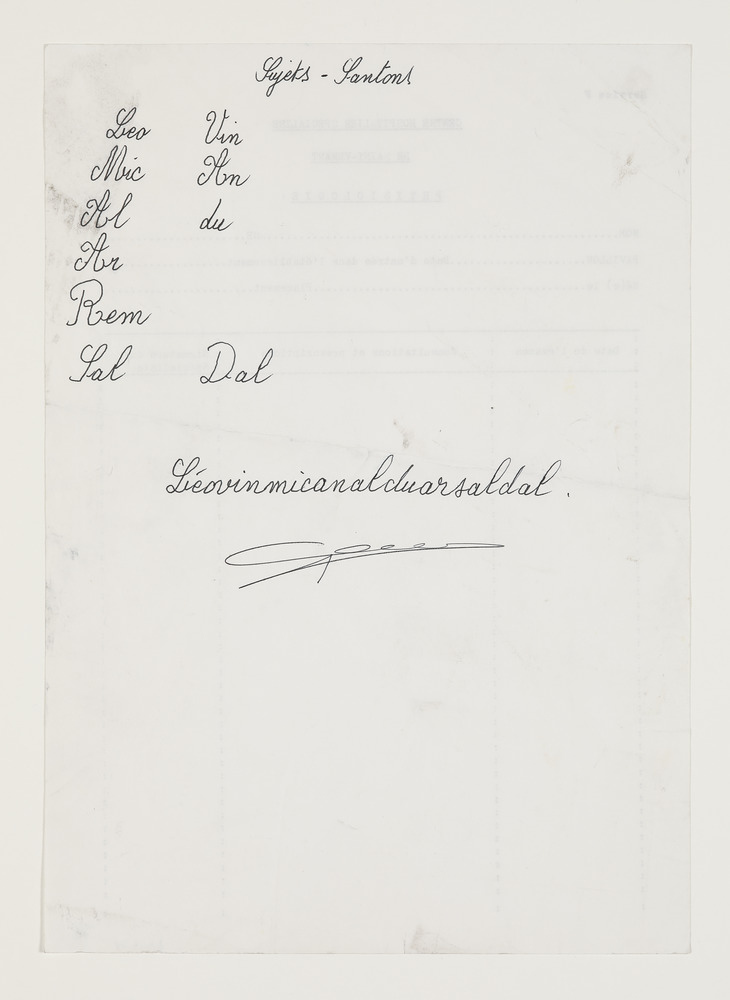 Sujets - Santons
Leo Vin
Mic An
Al du
Ar
Rem
Sal Dal
Léovinmicanalduarsaldal.